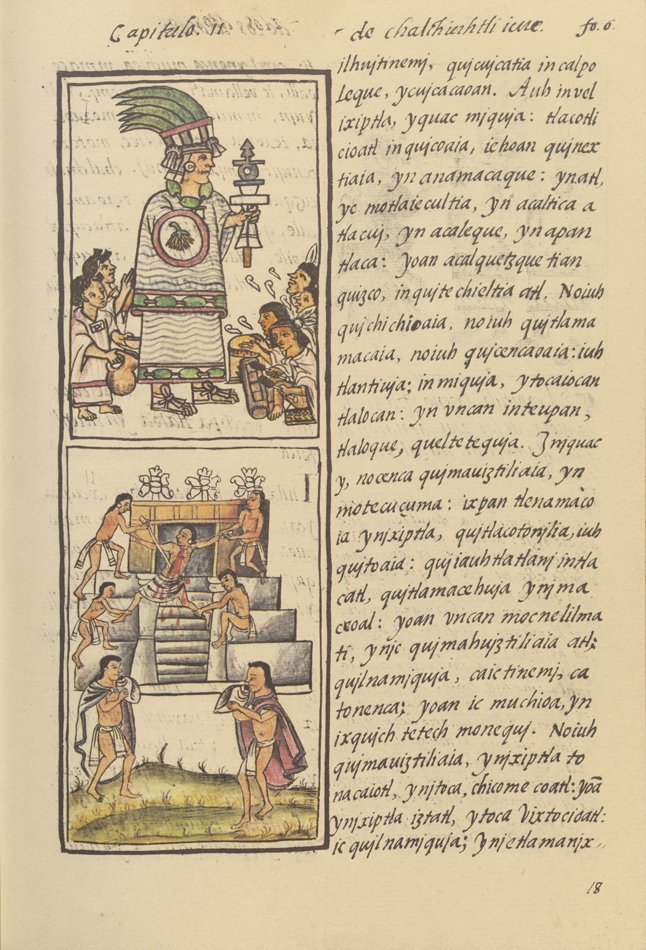 Capitulo. 11.
de chalchiuhtli icue.
fo. 6.
ilhujtinemj, qujcujcatia in calpo
leque, ycujcacaoan. Auh in vel
ixiptla, yquac mjquja: tlacotli
cioatl in qujcoaia, ichoan qujnex
tiaia, yn anamacaque: yn atl,
yc motlaiecultia, yn acaltica a
tlacuj, yn acaleque, yn apan
tlaca: yoan acalquetzque tian
quizco, in qujtechieltia atl. No iuh
qujchichioaia, no iuh qujtlama
macaia, no iuh qujcencaoaia: iuh
tlantiuja; in mjquja, ytocaiocan
tlalocan: yn vncan inteupan,
tlaloque, queltetequja. In jquac
y, nocenca qujmaviztiliaia, yn
motecuçuma: ixpan tlenamaco
ia ynjxiptla, qujtlacotonjlia, iuh
qujtoaia: qujiauhtlatlanj in tla
catl, qujtlamacehuja ynj ma
ceoal: yoan vncan mocnelilma
ti, ynjc qujmahujztiliaia atl;
qujlnamjquja, ca ic tinemj, ca
tonenca; yoan ic muchioa, yn
ixqujch tetech monequj. No iuh
qujmaviztiliaia, ynjxiptla to
nacaiotl, ynjtoca, chicome coatl: yoã
ynjxiptla iztatl, ytoca vixtocioatl:
ic qujlnamjquja; ynjc tlamanjx..
18